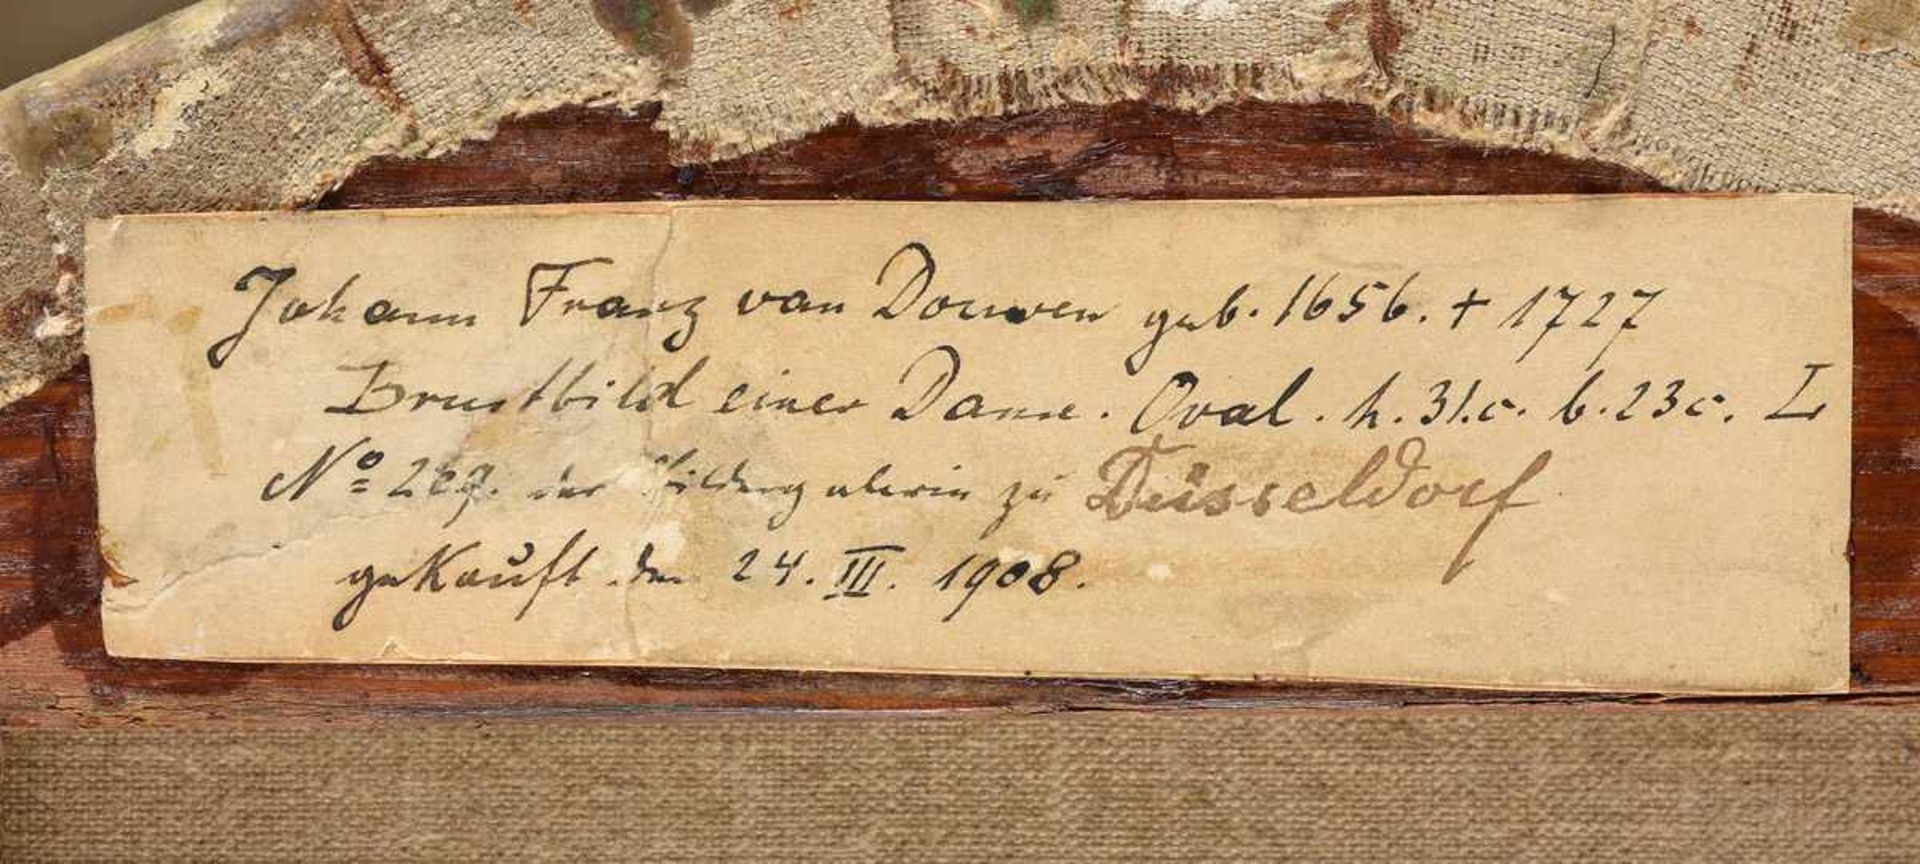 Johann Franz van Douwen geb. 1656. + 1727
Brustbild einer Dame. Oval. h. 31.c. b. 23 c. L
Nº 267. der zu Düsseldorf
gekauft den 24. III. 1908.